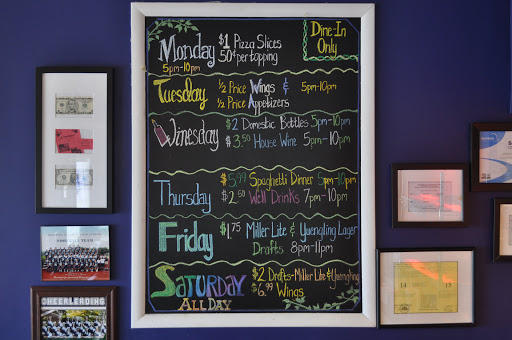 Dine-In
Only
Monday $1 Pizza Slices
5pm-10pm 50¢ per topping
Tuesday ½ Price Wings & 5pm-10pm
½ Price Appetizers
Winesday $2 Domestic Bottles 5pm-10pm
$3.50 House Wine 5pm-10pm
Thursday $5.99 Spaghetti Dinner 5pm-10pm
$2.50 Well Drinks 7pm-10pm
Friday $1.75 Miller Lite & Yuengling Lager
Drafts 8pm-11pm
Saturday $2 Drafts-Miller Lite & Yuengling
All Day $6.99 Wings
CHEERLEADING
14 13